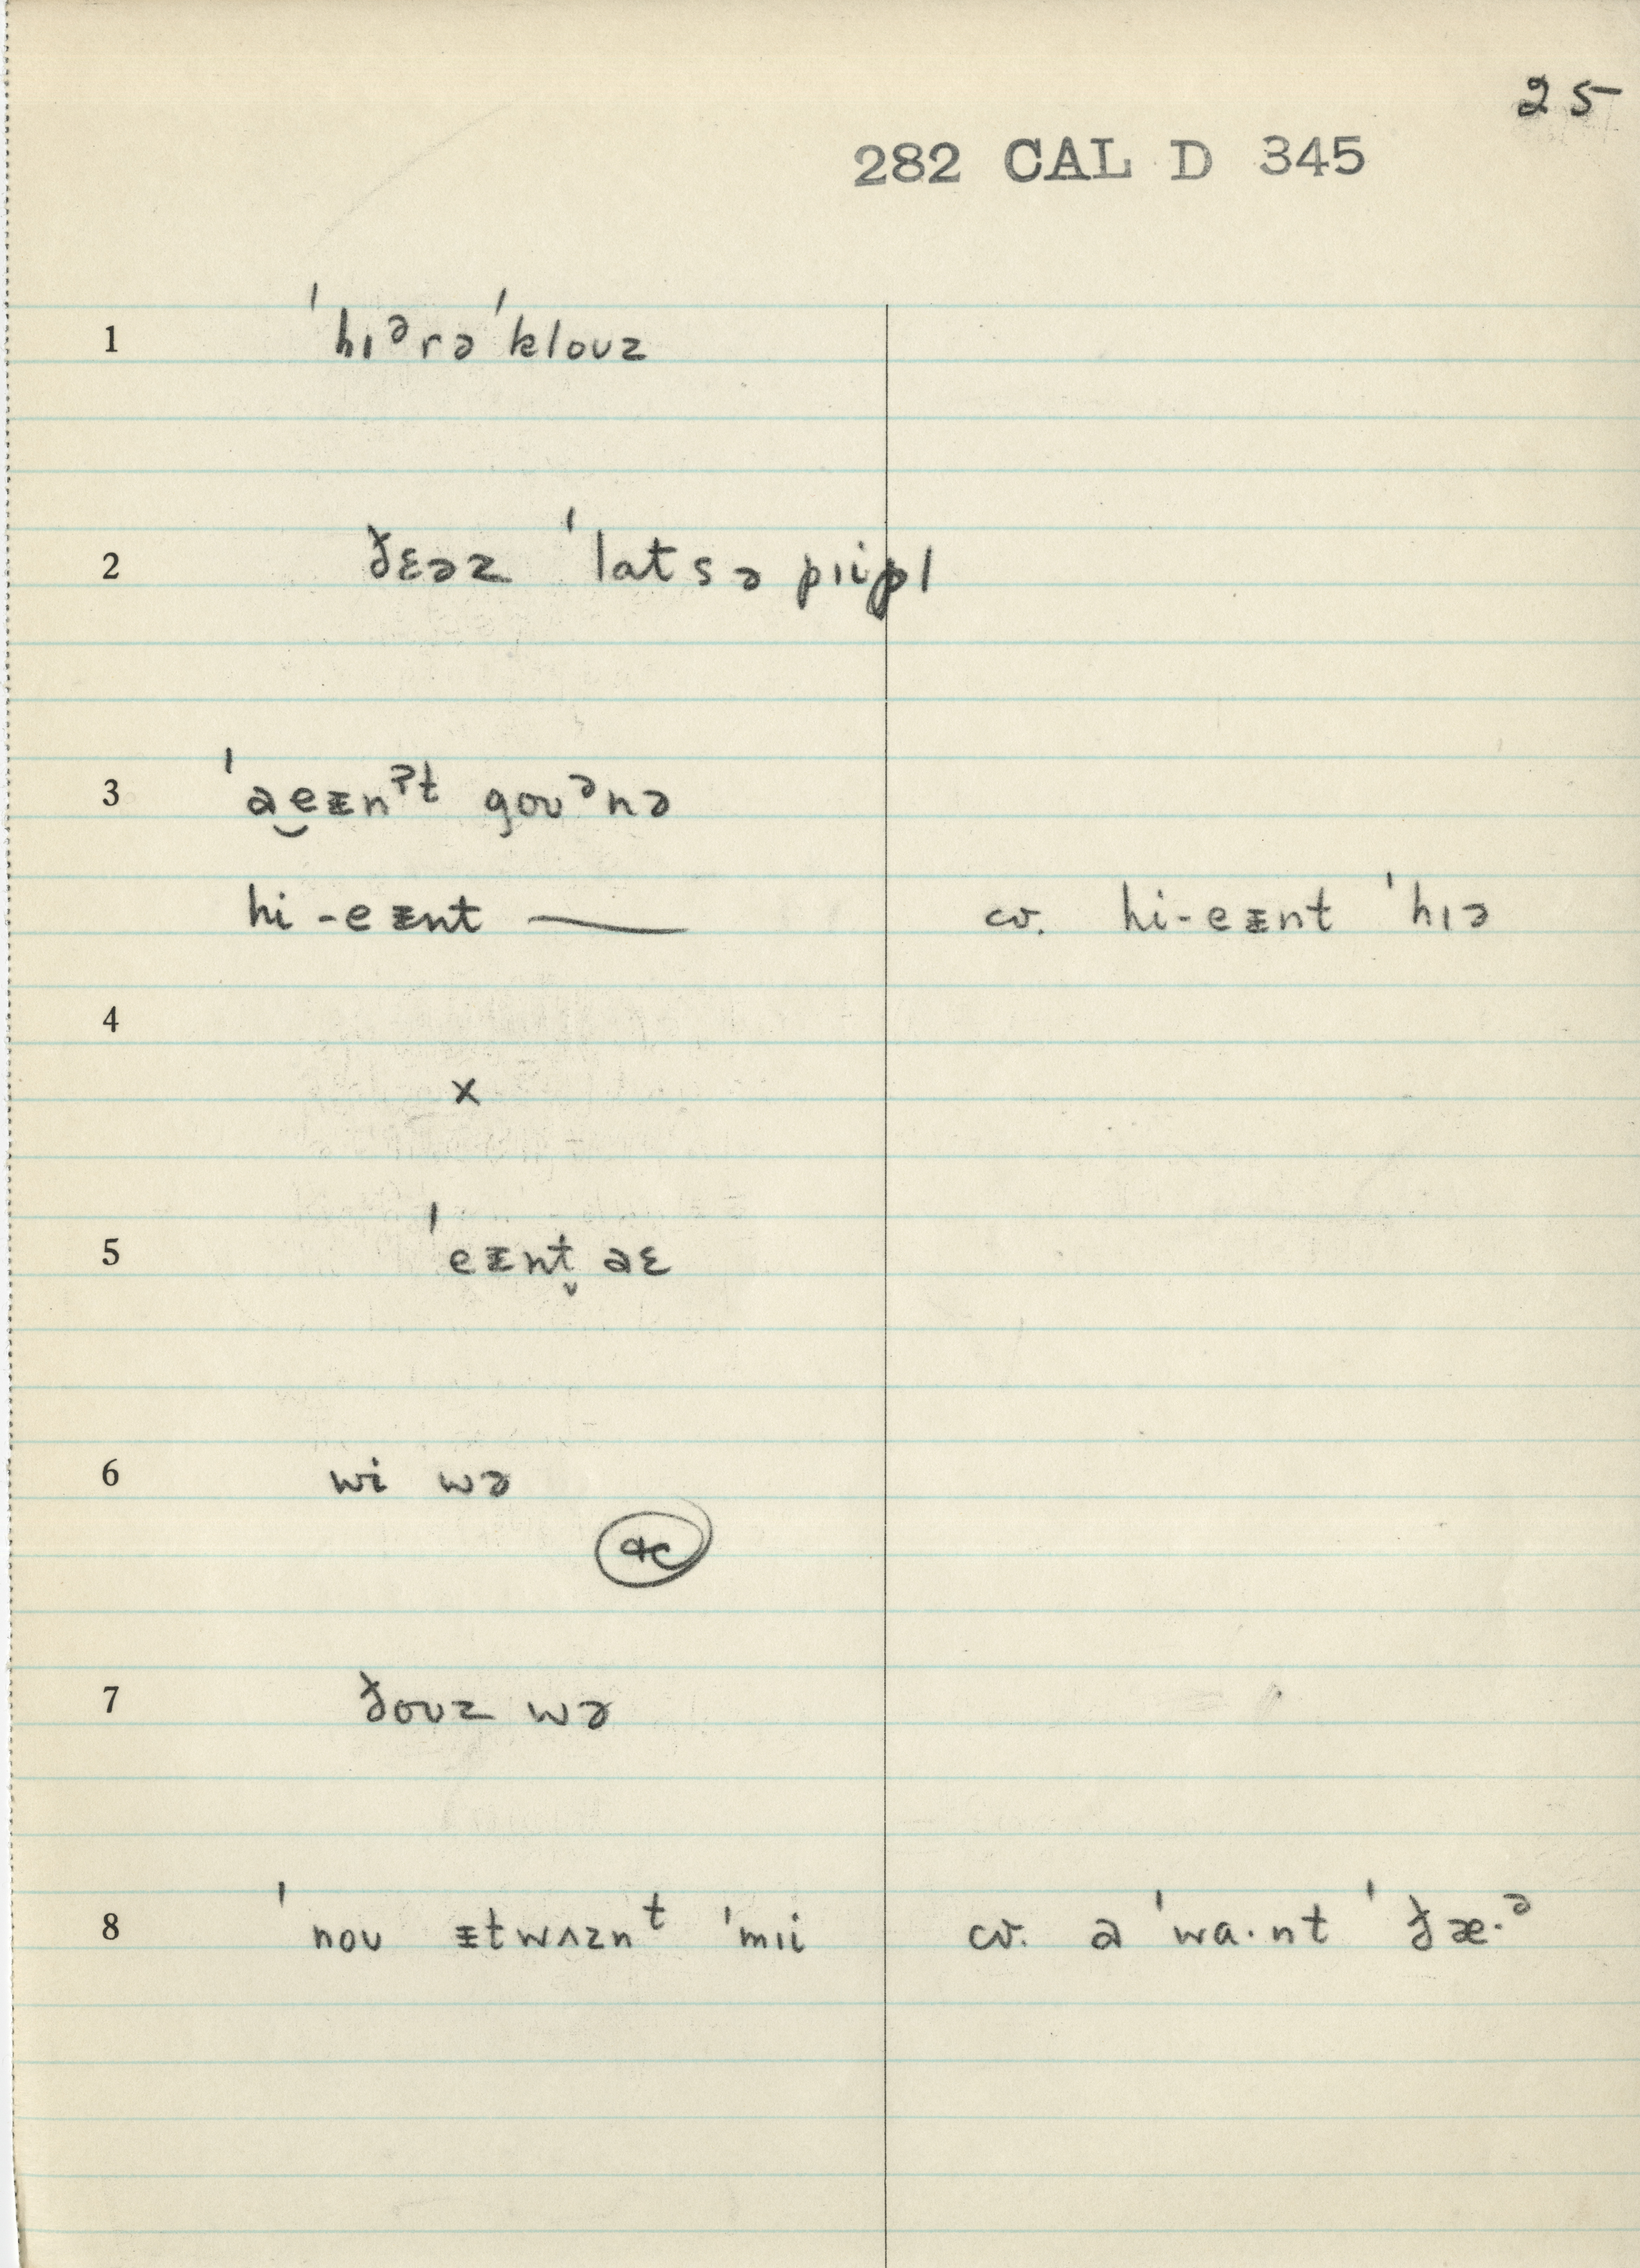 25
282 CAL D 345
1 ˈhɪᵊrə ˈkloʊz
2 ðɛəz ˈlatsə pɪipl
3 ˈae̮ᵻnˀᵗ goʊᵊnə
hi-eᵻnt —— cv. hi-eᵻnt ˈhɪə
4
x
5 ˈeᵻnt̬ aɛ
6 wi wə
7 ðoʊz wə
8 ˈnoʊ ᵻtwʌznᵗ ˈmɪi cv. a ˈwa·nt ˈðæ·ᵊ